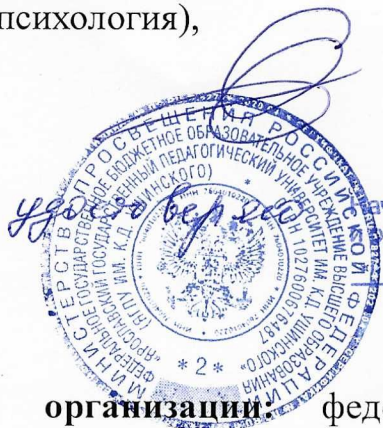 психология),
удостоверяю
МИНИСТЕРСТВО ПРОСВЕЩЕНИЯ РОССИЙСКОЙ ФЕДЕРАЦИИ
ФЕДЕРАЛЬНОЕ ГОСУДАРСТВЕННОЕ БЮДЖЕТНОЕ ОБРАЗОВАТЕЛЬНОЕ УЧРЕЖДЕНИЕ ВЫСШЕГО ОБРАЗОВАНИЯ
"ЯРОСЛАВСКИЙ ГОСУДАРСТВЕННЫЙ ПЕДАГОГИЧЕСКИЙ УНИВЕРСИТЕТ ИМ. К.Д. УШИНСКОГО"
(ЯГПУ ИМ. К.Д. УШИНСКОГО)
* 2 *
организации: фед